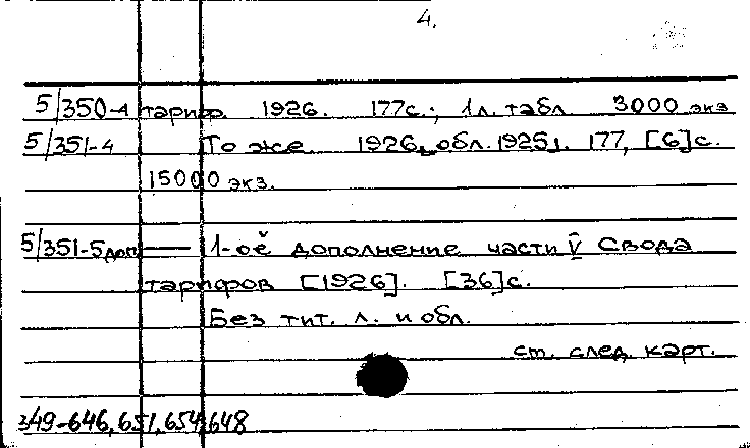 4.
5/350-4 тариф. 1926. 177с.; 1л. табл 3000 экз
5/351-4 То же 1926, обл. 1925]. 177, [6]с.
15000 экз.
5/351-5доп. — 1-ое дополнение части V Свода
тарифов [1926]. [36]с.
Без тит. л. и обл.
см. след. карт.
349-646,651,654,648